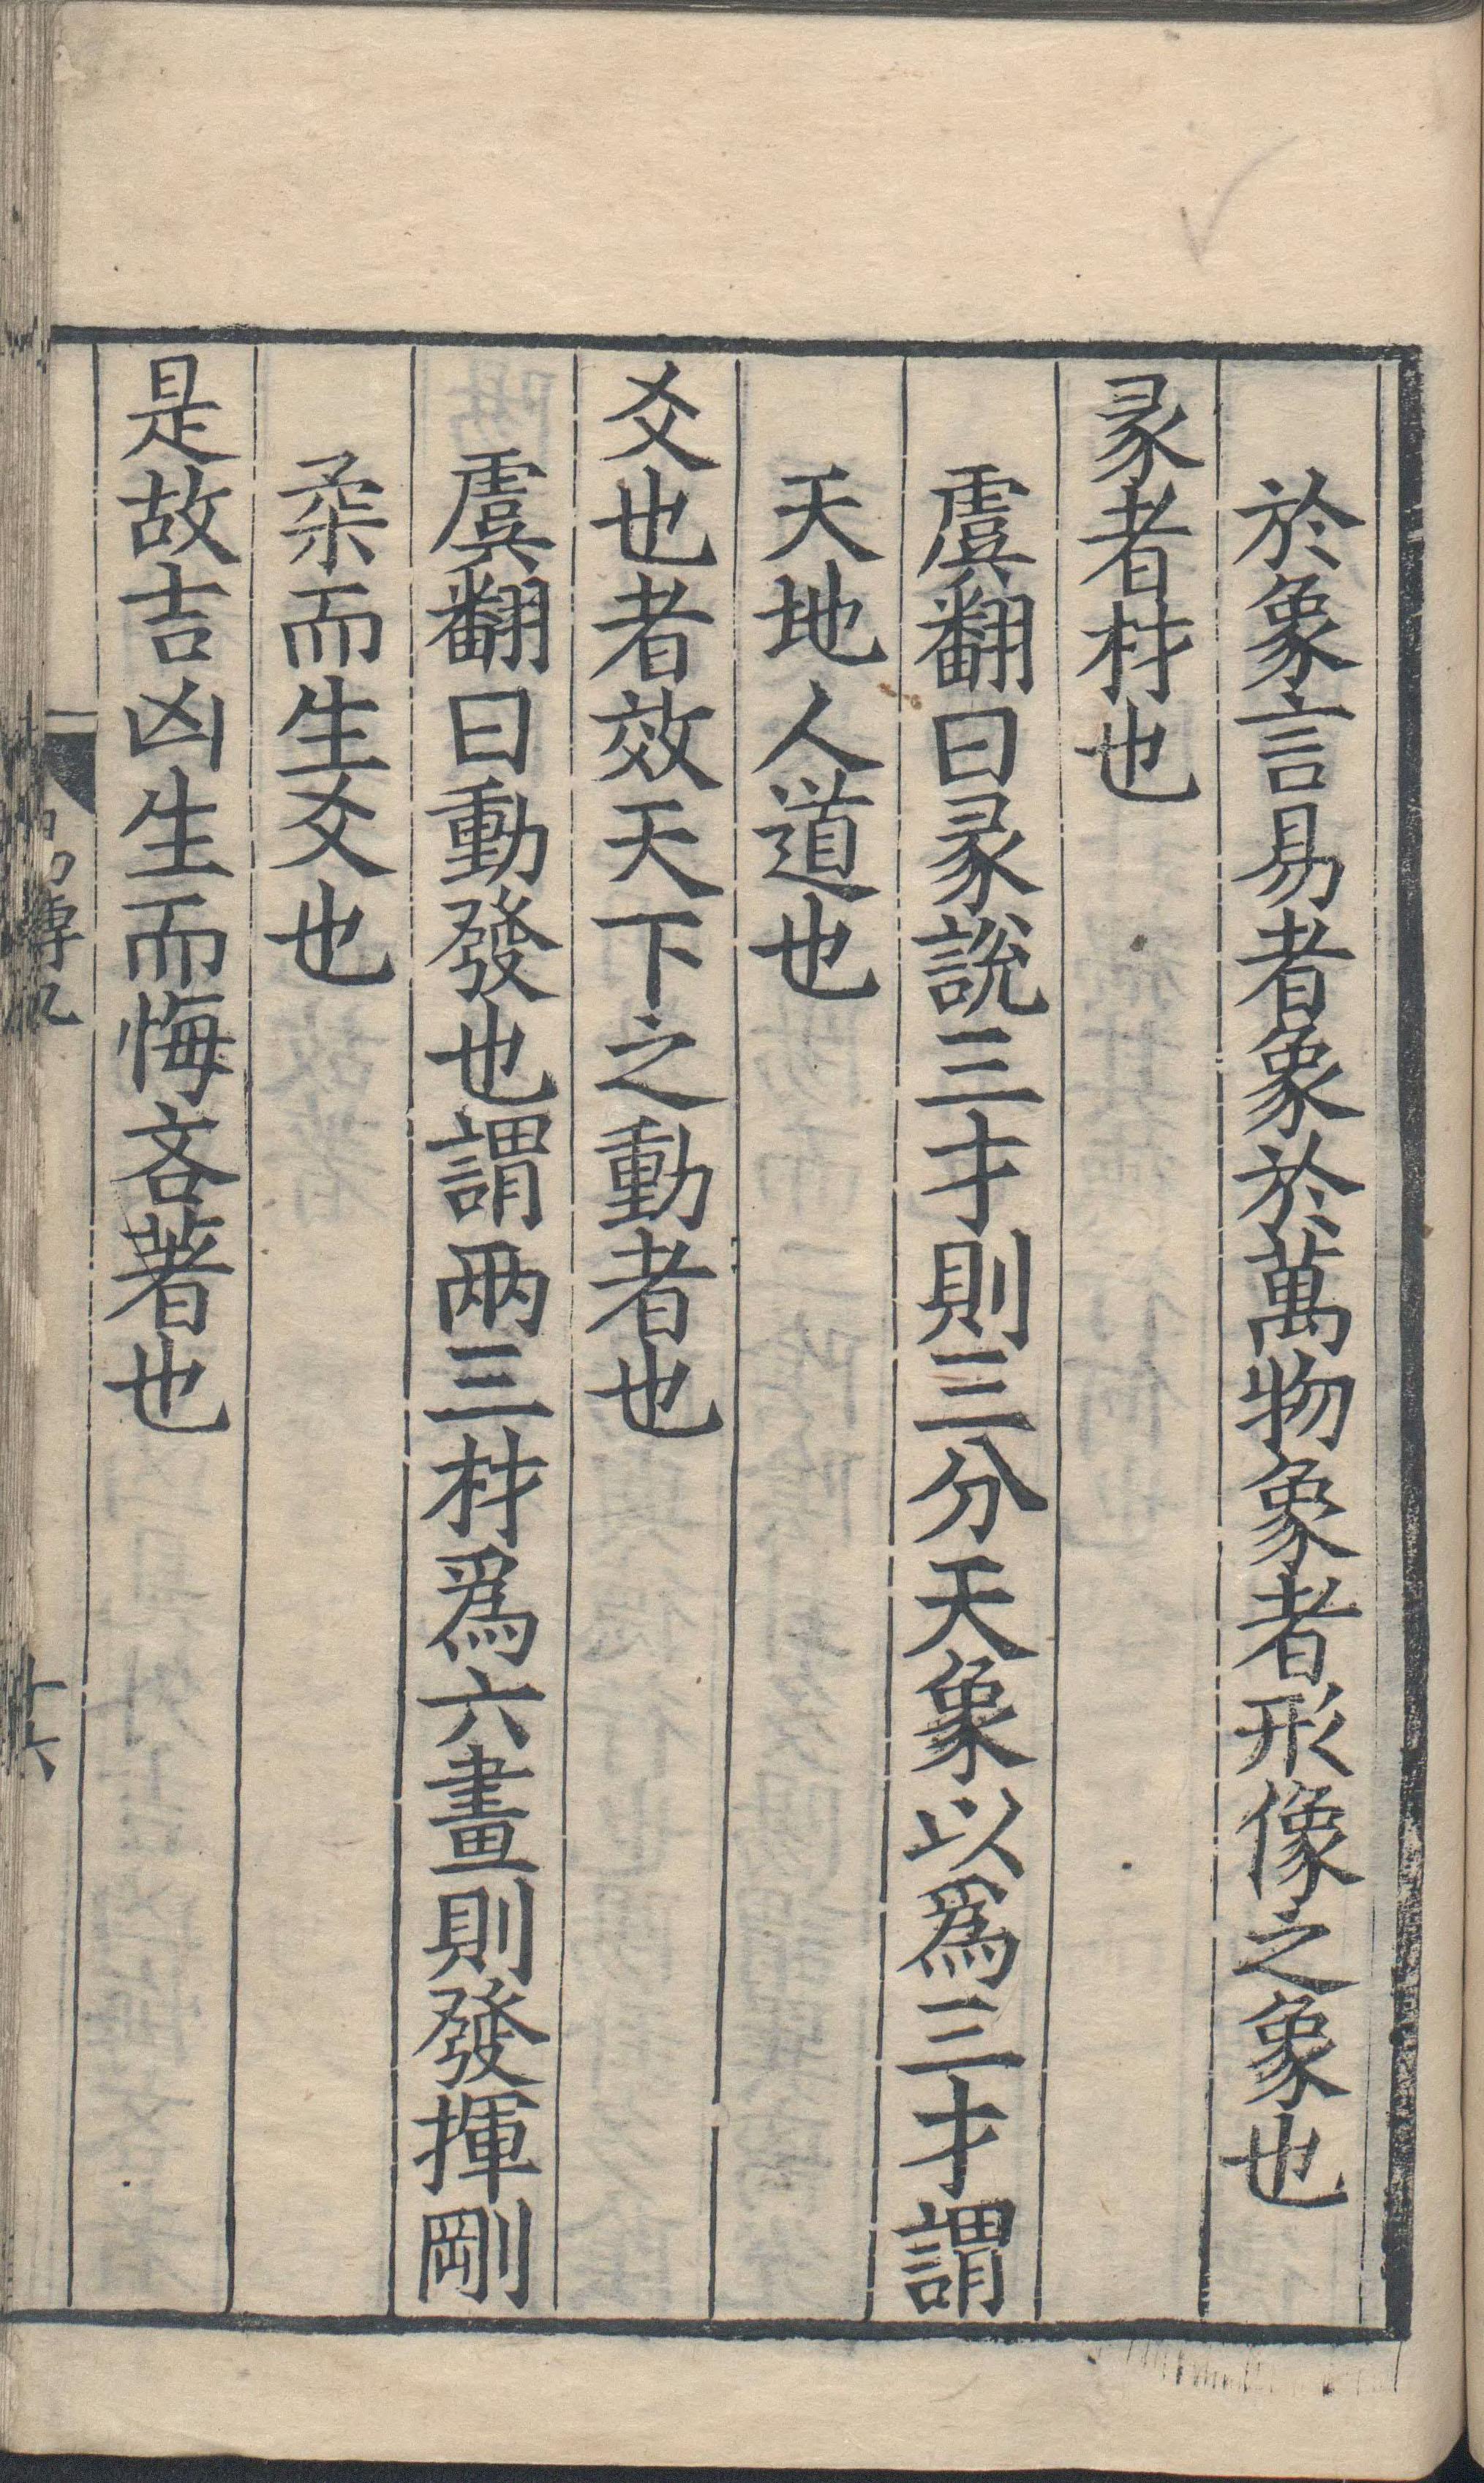 於象言易者象於萬物象者形像之象也
彖者材也
虞翻曰彖說三才則三分天象以爲三才謂
天地人道也
爻也者效天下之動者也
虞翻曰動發也謂兩三材爲六畫則發揮剛
柔而生爻也
是故吉凶生而悔吝著也
十六